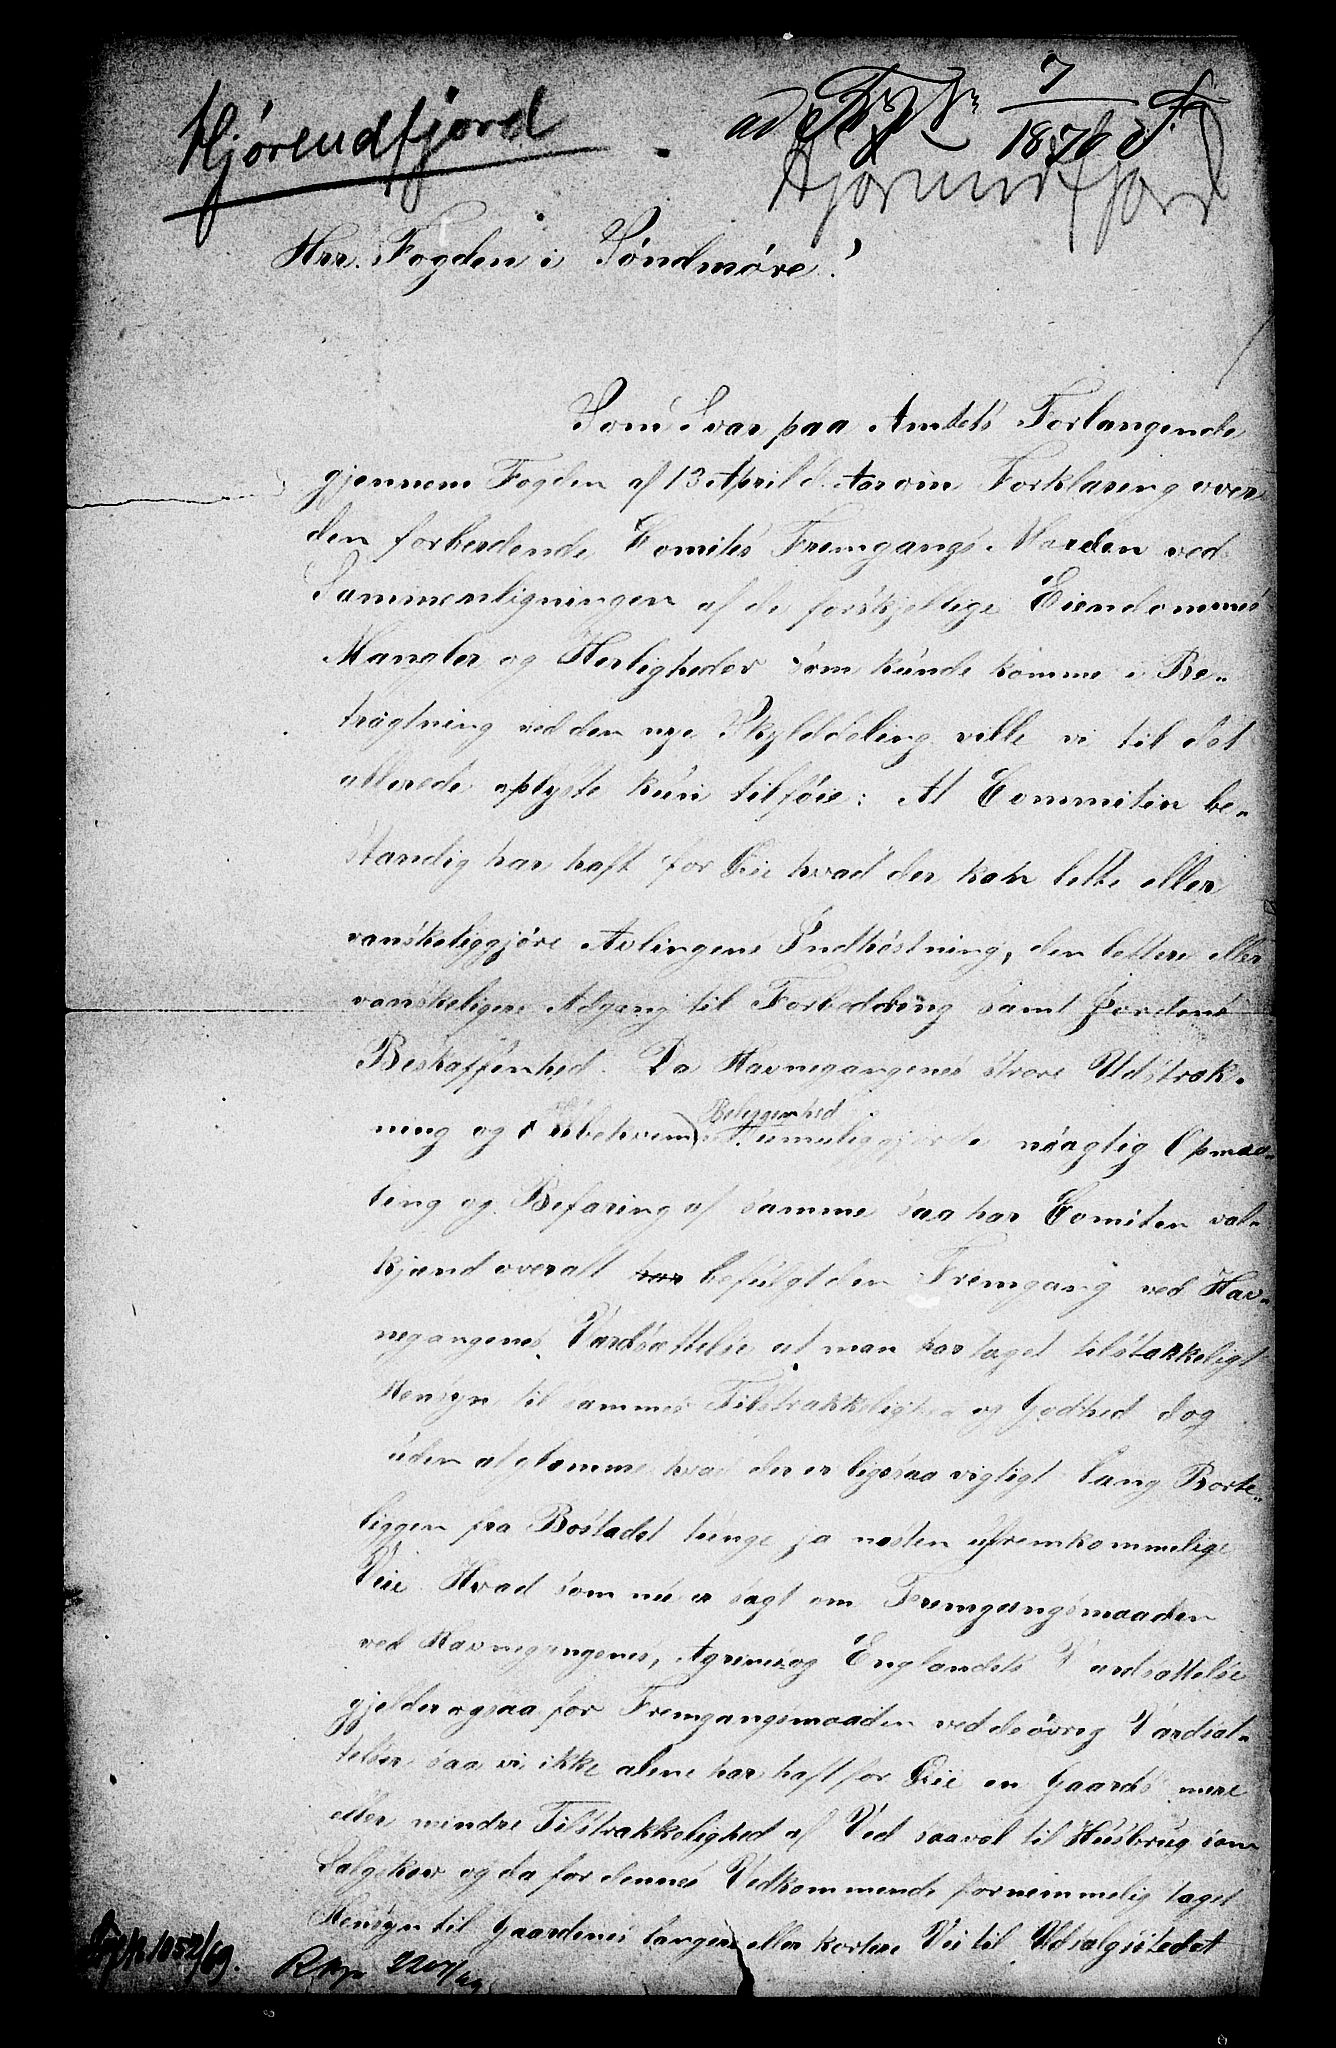 Hjørendfjord
ad 7/1876
Hjørundfjord
Hrr. Fogden i Søndmøre!
Som Svar paa Amtets Forlangende
gjennem Fogden af 13 April d. Aar om Forklaring over
den forberdende Comites Fremgangs Maaden ved
Sammenligningen af de forskjellige Eiendommes
Mangler og Herligheder som kunde komme i Be-
tragtning ved den nye Skylddeling ville vi til det
allerede oplyste kun tilføie: At Commiteen be-
standig har haft for Øie hvad der kan lette eller
vanskeliggjøre Avlingens Indhøstning, den lettere eller
vanskeligere Adgang til Forbedding samt Jordens
Beskaffenhed. Da Havnegangenes store Udstræk-
ning og ubekvem Beliggenhed umuliggjorde nøagtig Opmaa-
ling og Befaring af samme saa har Comiten vel-
kjend overalt har befulgt den Fremgang ved Hav-
negangenes Værdsættelse at man har taget tilstækkeligt
Hensyn til sammes Tilstrækkelighed og Godhed dog
uden at glemme hvad der er ligesaa vigtigt lang Borte-
liggen fra Bostadet tunge ja næsten ufremkommelige
Veie. Hvad som nu er sagt om Fremgangsmaaden
ved Havnegangenes, Agrenes og Englandets Værdsættelse
gjelder ogsaa for Fremgangsmaaden ved de øvrig Værdsæt-
telser saa vi ikke alene har haft for Øie en Gaards mere
eller mindre Tilstrækkelighed af Ved saavel til Husbrug som
Salgskov og da for dennes Vedkommende fornemmelig taget
Hensyn til Gaardenes længere eller kortere Vei til Udsalgsstedet
1052/69.
Rkp 2207/69